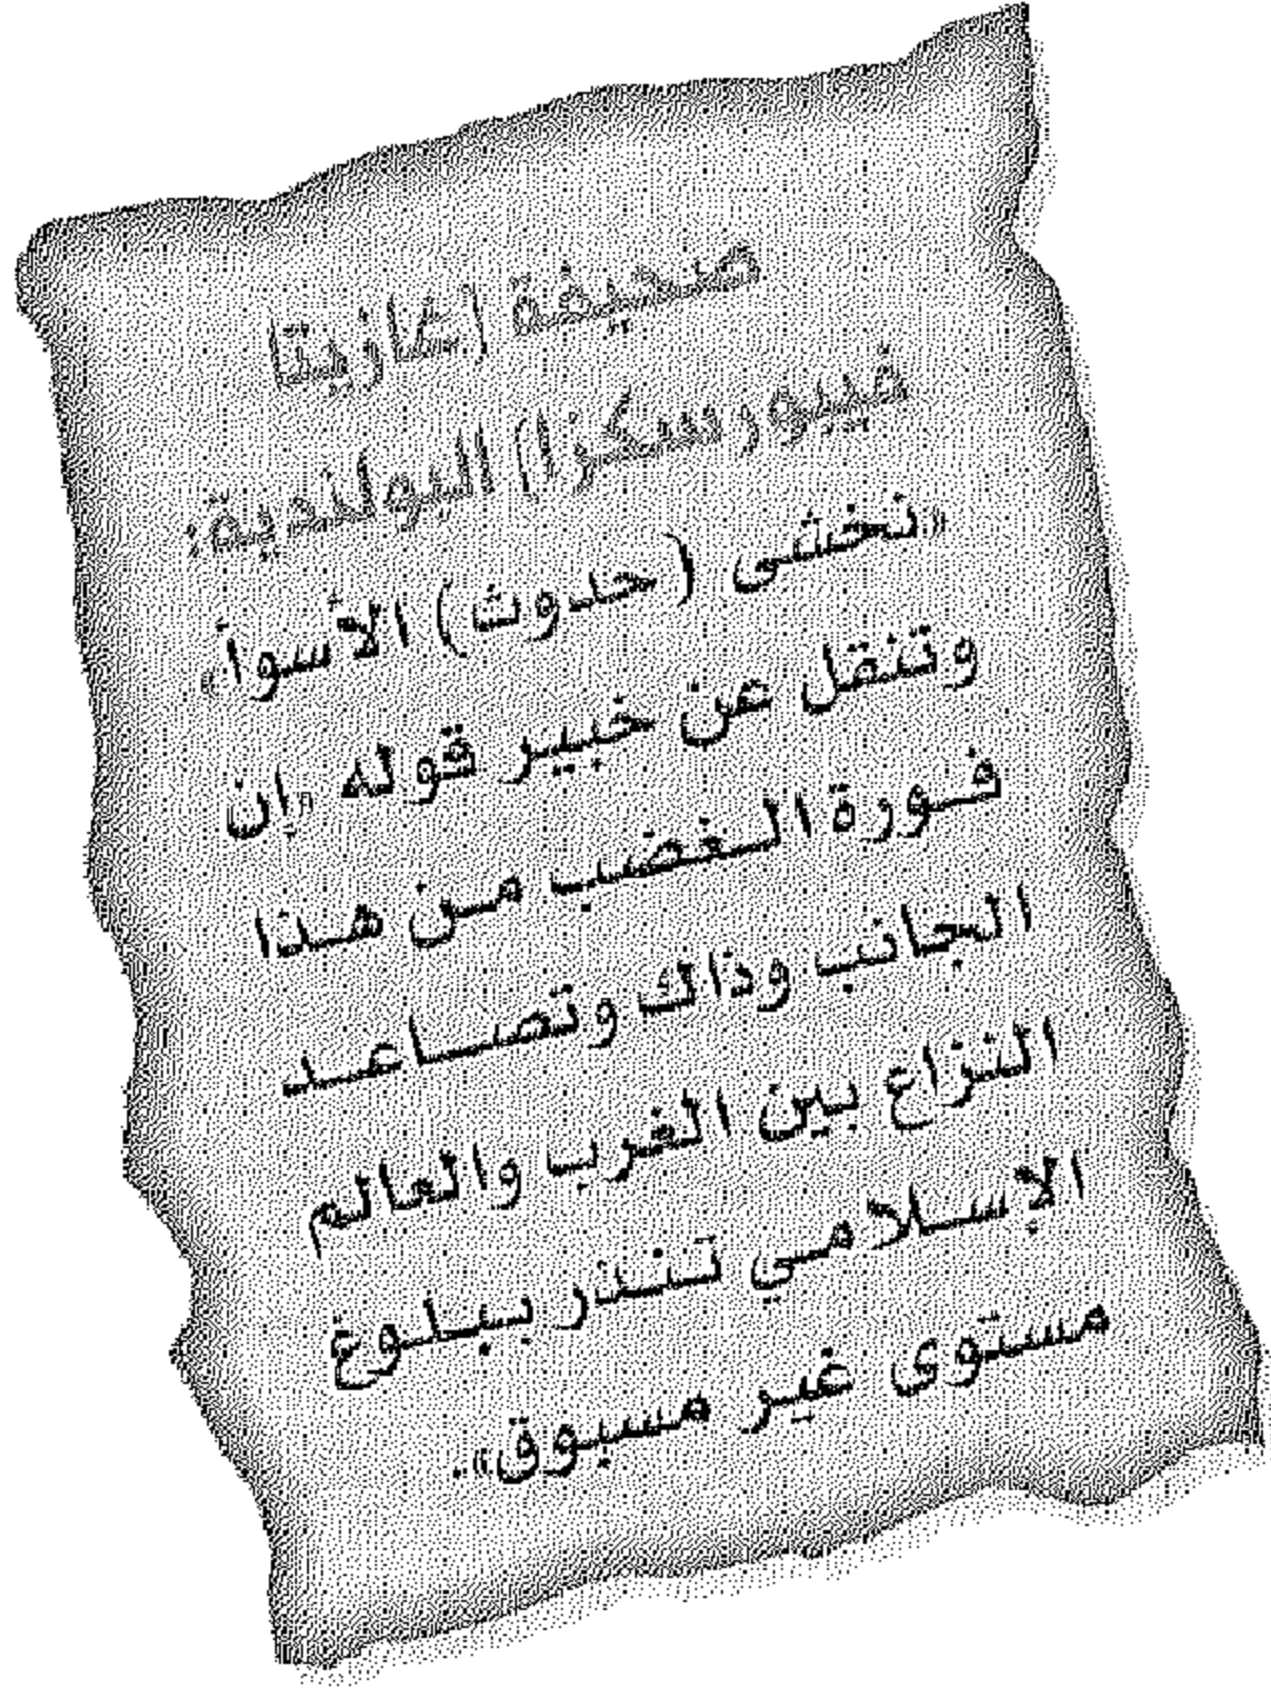 صحيفة (غازيتا
فيبورسكزا) البولندية:
«نخشى (حدوث) الأسوأ»
وتنقل عن خبير قوله «إن
فورة الغضب من هذا
الجانب وذاك وتصاعد
النزاع بين الغرب والعالم
الإسلامي تنذر ببلوغ
مستوى غير مسبوق».